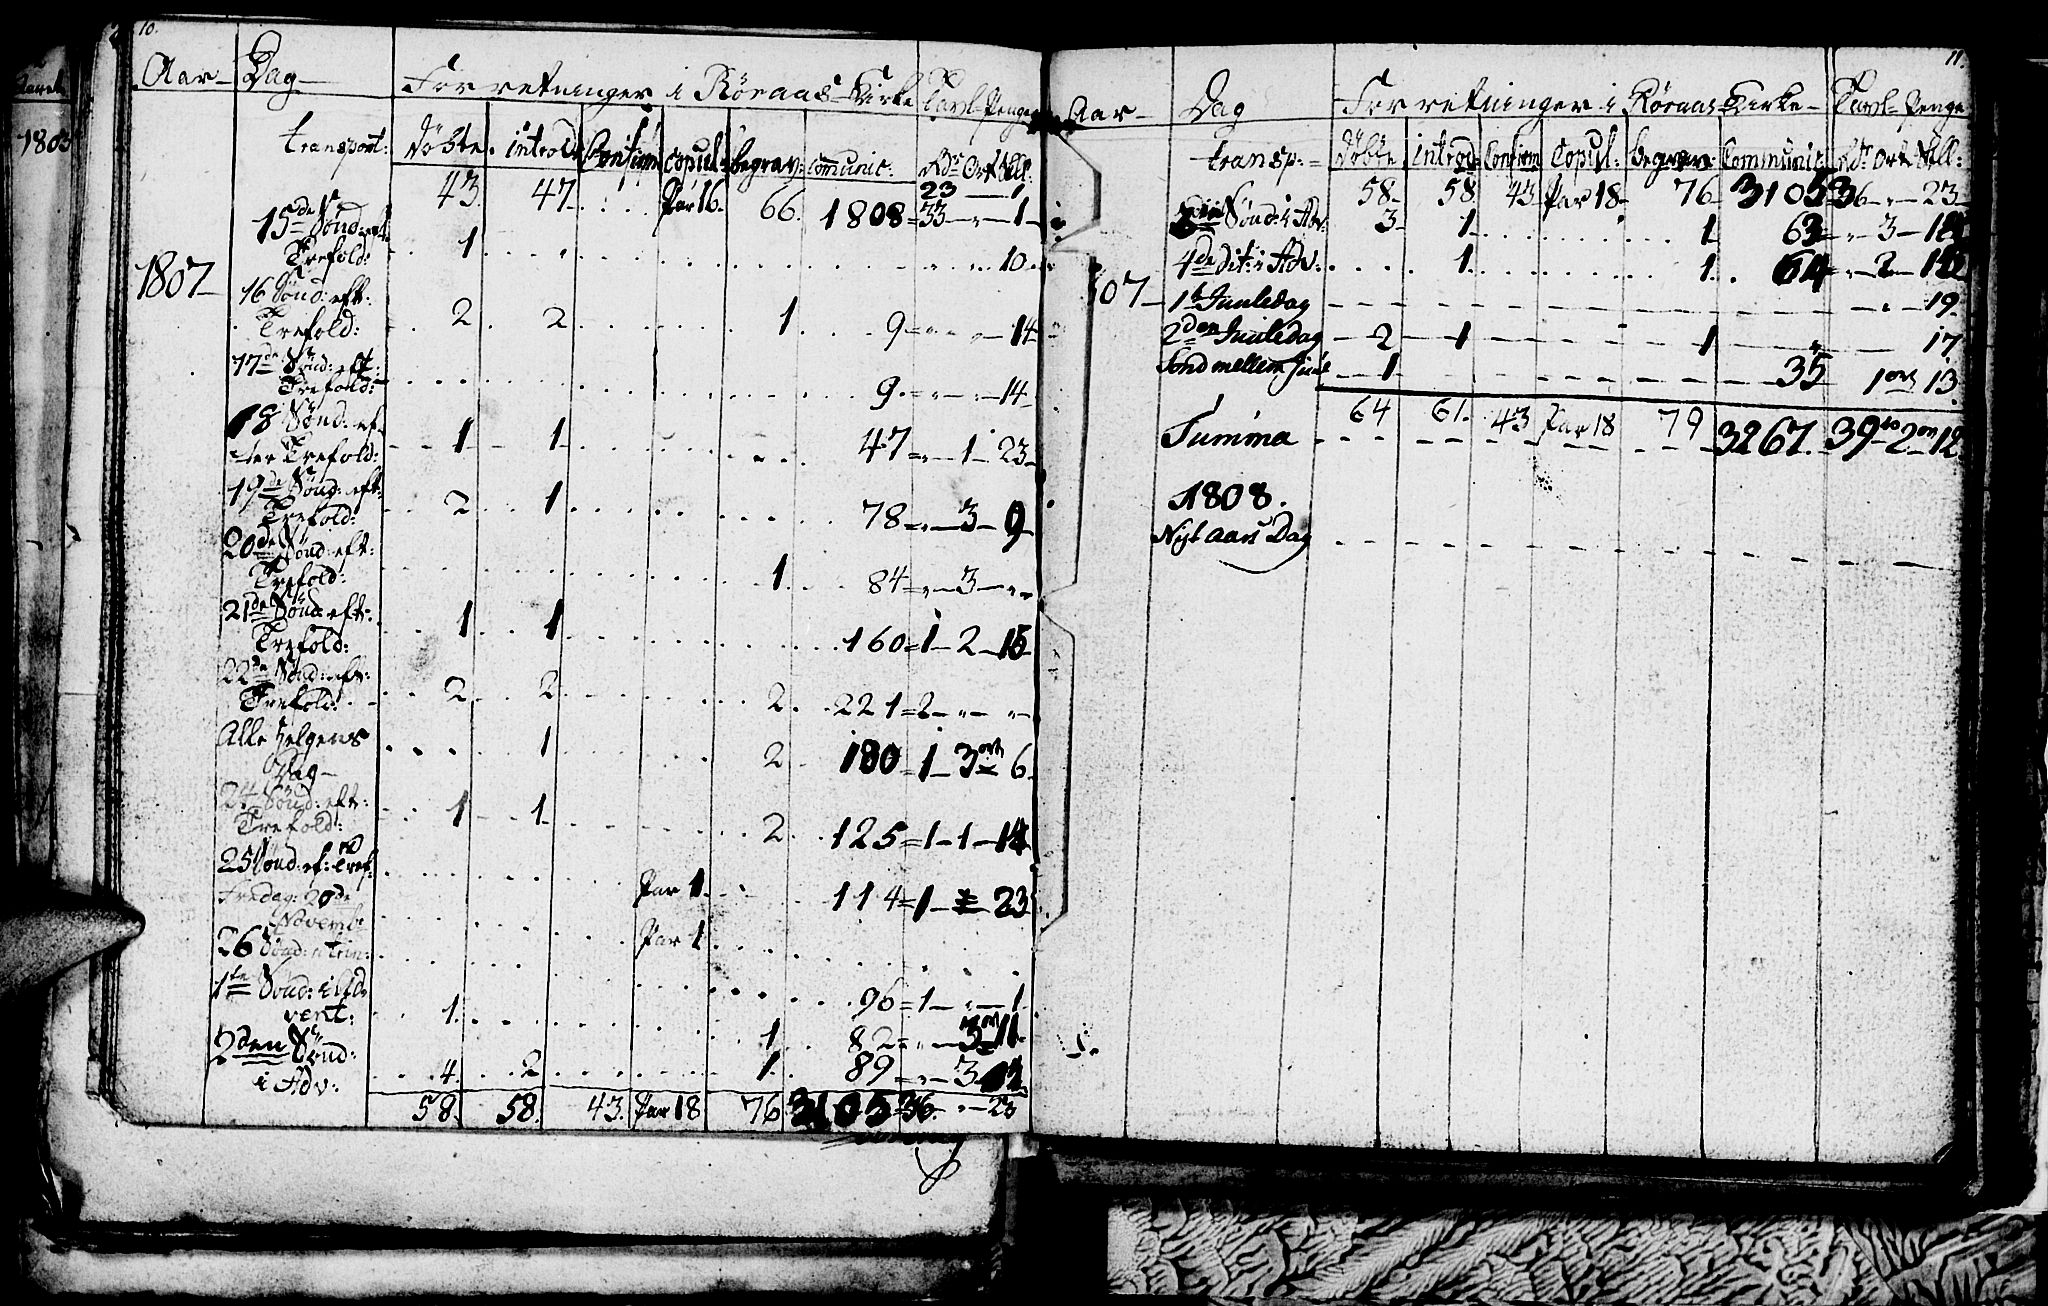 10.
Aar Dag Forretninger i Röraas Kirke Tavl-Penge
transport: döbte. introd: Confirm copul: begrav: communic: Rdr Ort Sk:
43. 47. Par 16. 66. 1808 = 33 — „ — 1
1807
15de Sönd: eft. Trefold: 1 . . . 10
16 Sönd: eft: Trefold: 2. 2. 1. 9 = „ — „ — 14
17de Sönd: eft: Trefold: 9. = „ — „ — 14
18 Sönd: ef-
ter Trefold: 1 1 47 = „ — 1 — 23
19de Sönd: eft: Trefold: 2 1 78 = „ — 3 — 9
20de Sönd: eft: Trefold: 1. 84 = „ — 3 — „
21de Sönd: eft: Trefold: 1 1 160 = 1 — 2 — 15
22de Sönd: eft: Trefold: 2 2 2. 221 = 2 — „ — „
Alle Helgens Dag 1 2 180 = 1 — 3ort 6
24 Sönd: eft: Trefold: 1 1 2 125 = 1 — 1 — 14
25 Sönd: ef: Tref: Par 1. 114 = 1 — 23
Fredag: 20de Novemb: Par 1
26 Sönd: Trin: 96 = 1 — „ — 1
1te Sönd: i Ad-
vent: 1. 1. 82 = „ — 3ort 11
2den Sönd: i Adv: 4. 2 1. 89 = „ — 3
58. 58. 43. Par 18 76 3105 36. „ — 23
11.
Aar Dag Forretninger i Röraas Kirke Tavl-Penge
transp: döbte introd: Confirm Copul: begrav: Communic: Rdr Ort Skll:
58 58 43 Par 18 76 3105 36 — „ — 23
Sönd: i Adv: 3 1 1 63 = „ 3 —
4de dit: i Adv: 1 1. 64 = „ 2 —
07 1t Juuledag — „ — 19
2den Juuledag 2 1 1 „ 17
Sönd mellem Juul 1 35 1ort 13
Summa 64 61. 43 Par 18 79 3267. 39 2 12
1808.
Nyt aars Dag